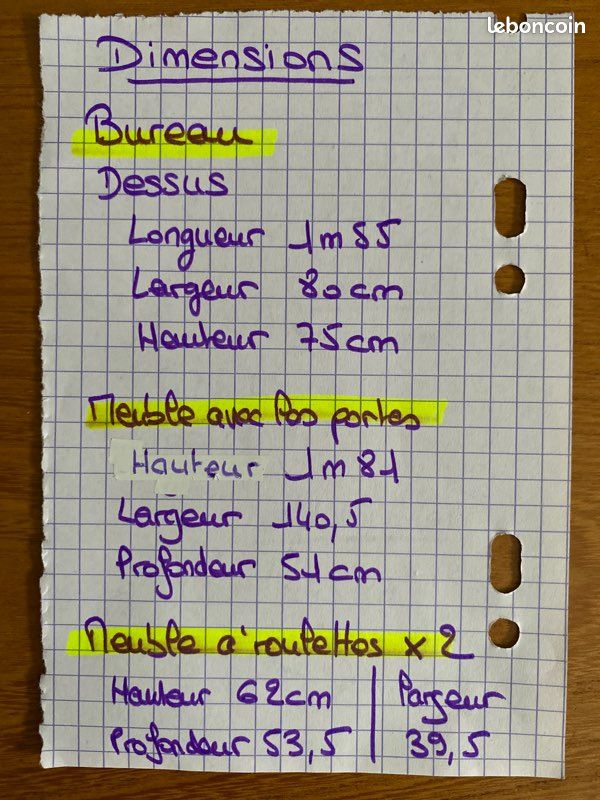 leboncoin
Dimensions
Bureau
Dessus
Longueur 1m55
Largeur 80cm
Hauteur 75cm
Meuble avec les portes
Hauteur 1m81
Largeur 140,5
Profondeur 51cm
Meuble à roulettes x 2
Hauteur 62cm | Largeur
Profondeur 53,5 | 39,5